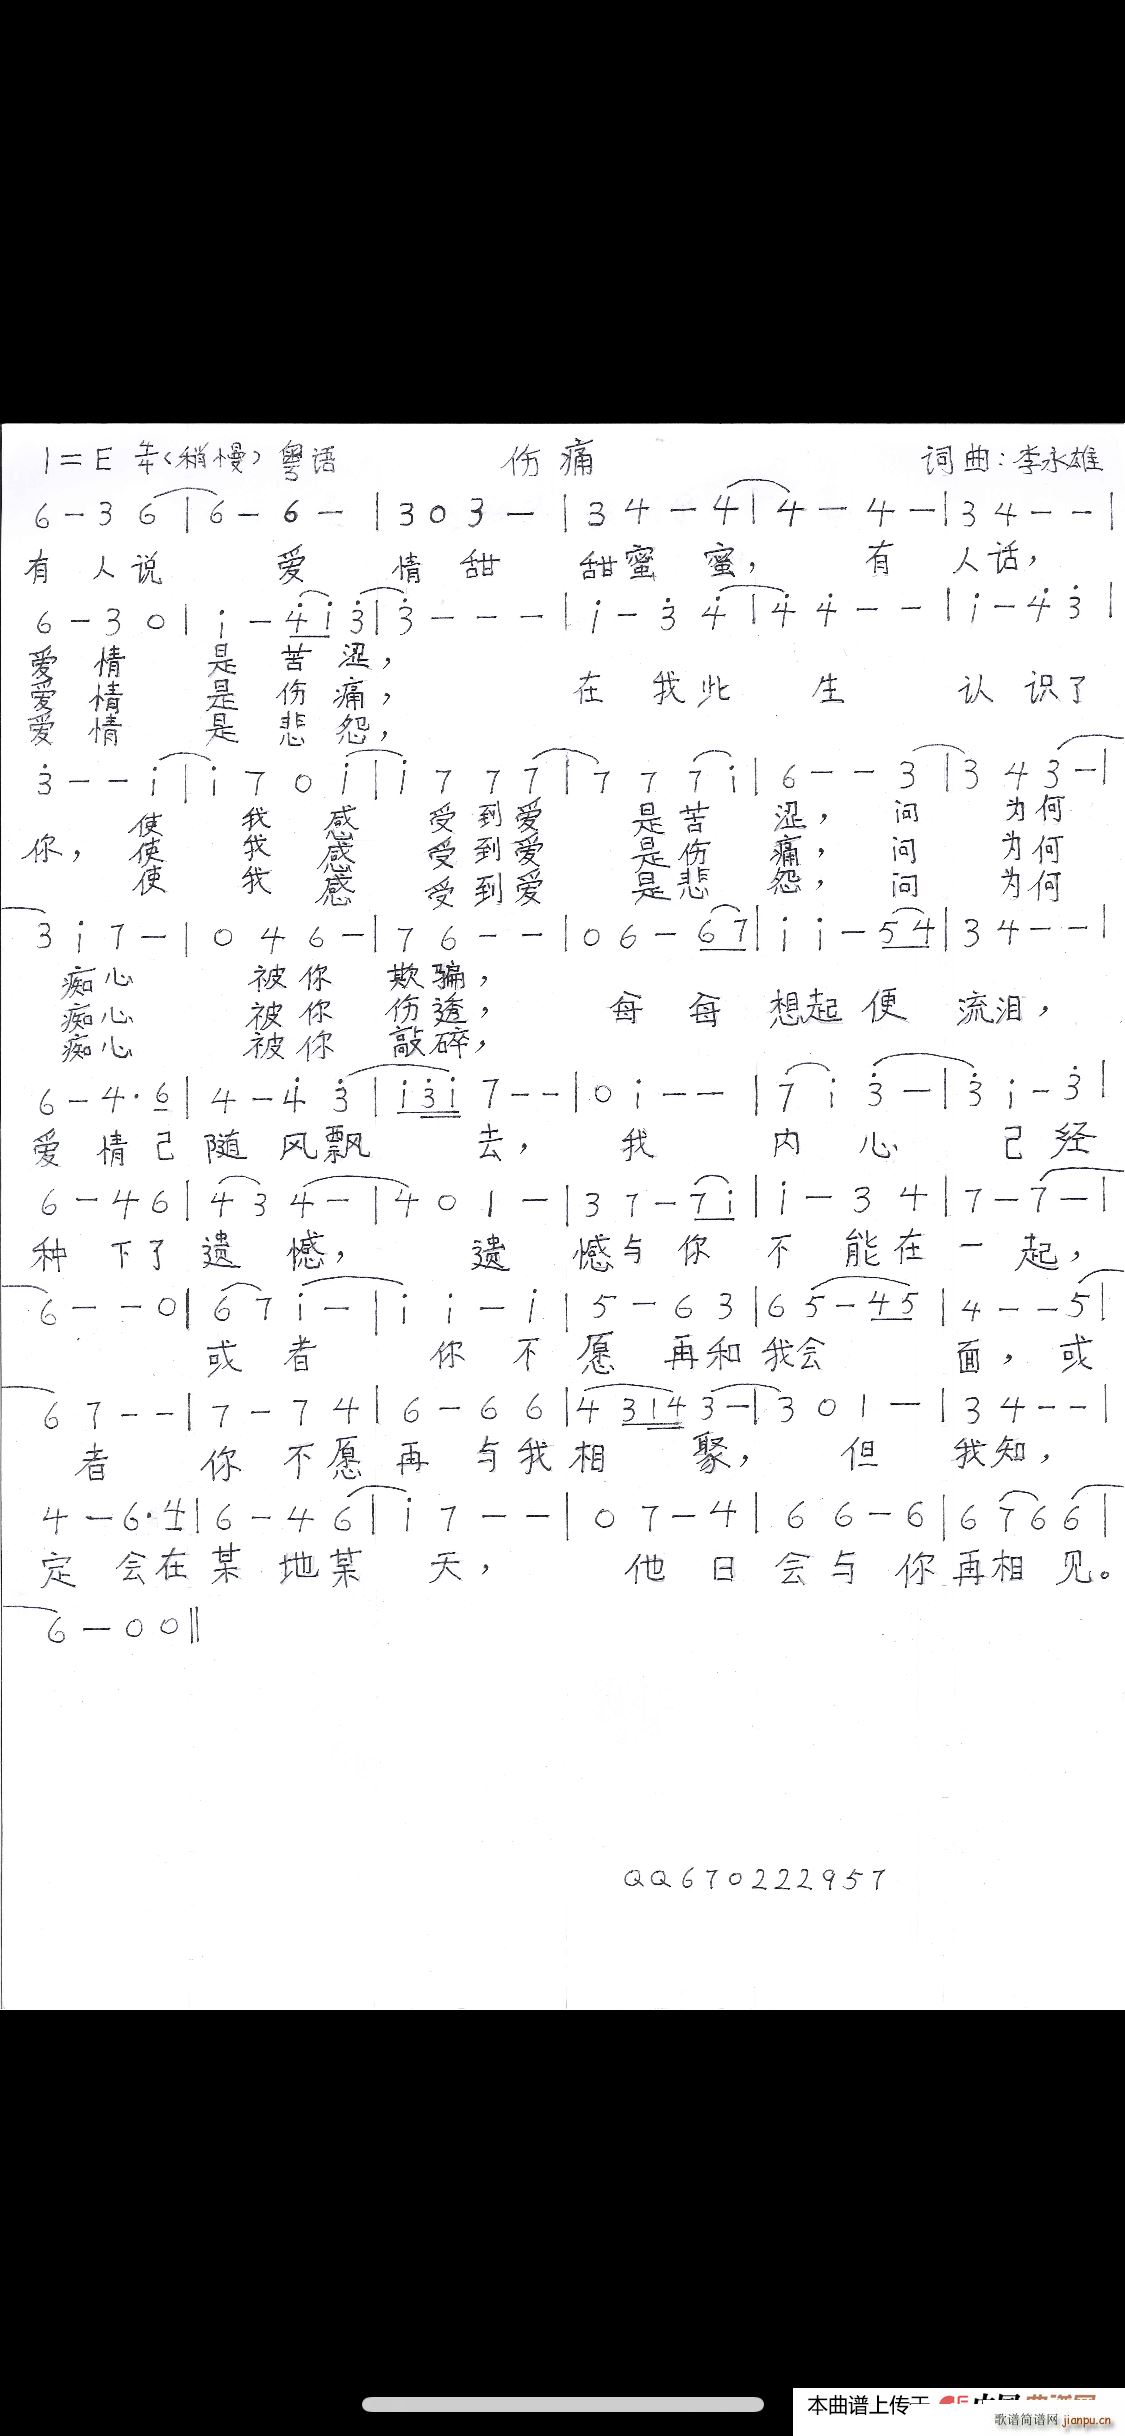 1=E 4/4(稍慢) 粤语 伤痛 词曲:李永雄
6 - 3 6 | 6 - 6 - | 3 0 3 - | 3 4 - 4 | 4 - 4 - | 3 4 - - |
有 人 说 爱 情 甜 甜 蜜 蜜, 有 人 话,
6 - 3 0 | i - 4̇ i 3̇ | 3̇ - - - | i - 3̇ 4̇ | 4̇ 4̇ - - | i - 4̇ 3̇ |
爱 情 是 苦 涩,
爱 情 是 伤 痛, 在 我 此 生 认 识 了
爱 情 是 悲 怨,
3̇ - - i | i 7 0 i | i 7 7 7 | 7 7 7 i | 6 - - 3 | 3 4 3 - |
使 我 感 受 到 爱 是 苦 涩, 问 为 何
你, 使 我 感 受 到 爱 是 伤 痛, 问 为 何
使 我 感 受 到 爱 是 悲 怨, 问 为 何
3 i 7 - | 0 4 6 - | 7 6 - - | 0 6 - 6 7 | i i - 5 4 | 3 4 - - |
痴 心 被 你 欺 骗,
痴 心 被 你 伤 透, 每 每 想 起 便 流 泪,
痴 心 被 你 敲 碎,
6 - 4 · 6 | 4 - 4̇ 3̇ | i 3̇ i 7 - - | 0 i - - | 7 i 3̇ - | 3̇ i - 3̇ |
爱 情 已 随 风 飘 去, 我 内 心 已 经
6 - 4 6 | 4 3 4 - | 4 0 1 - | 3 7 - 7 i | i - 3 4 | 7 - 7 - |
种 下 了 遗 憾, 遗 憾 与 你 不 能 在 一 起,
6 - - 0 | 6 7 i - | i i - i | 5 - 6 3 | 6 5 - 4 5 | 4 - - 5 |
或 者 你 不 愿 再 和 我 会 面, 或
6 7 - - | 7 - 7 4 | 6 - 6 6 | 4 3 1 4 3 - | 3 0 1 - | 3 4 - - |
者 你 不 愿 再 与 我 相 聚, 但 我 知,
4 - 6 · 4 | 6 - 4 6 | i 7 - - | 0 7 - 4 | 6 6 - 6 | 6 7 6 6 |
定 会 在 某 地 某 天, 他 日 会 与 你 再 相 见。
6 - 0 0 ‖
QQ670222957
本曲谱上传于
歌谱简谱网 jianpu.cn